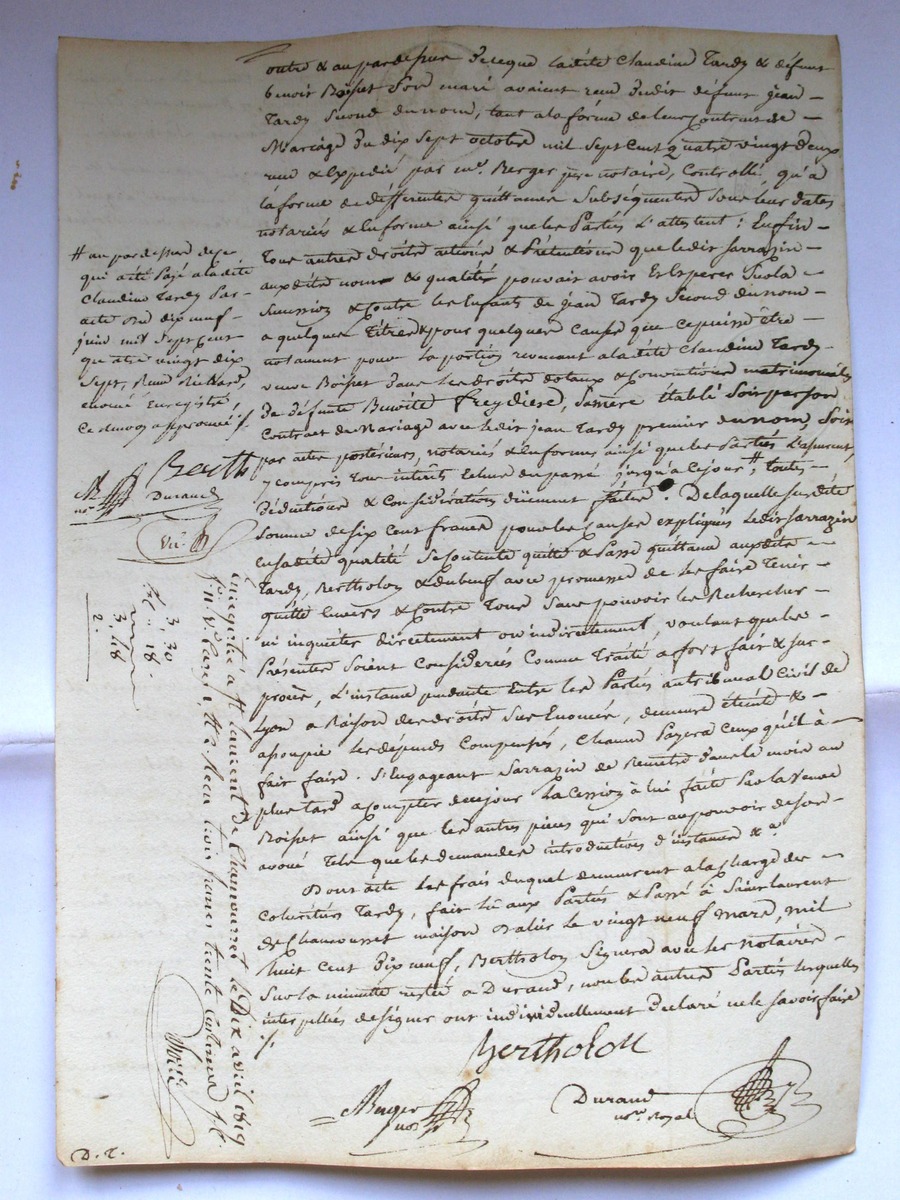 outre & au par dessus de ce que ladite Claudine Tardy & défunt
benoit Boiset son mari avaient reçu dudit défunt jean
Tardy second du nom, tant a la forme de leur Contrat de
Mariage du dix sept octobre mil sept cent quatre vingt deux
reçu & Expédié par me. Berger notaire, Controllé qu'a
la forme de différentes quittances Subséquentes sous leurs dates
notariés & En forme ainsi que les Parties L'attestent ; Enffin
Tous autres droits actions & Prétentions que ledit Sarrazin
auxdits noms & qualités pouvait avoir Et Esperer Sur la
Succession & Contre les Enfants de jean Tardy Second du nom
a quelques Titres & pour quelques Causes que ce puisse être
notament pour la portion revenant a ladite Claudine Tardy
veuve Boiset dans les droits dotaux & Conventions matrimoniales
de défunte Benoite Freydiere, Sa mère Etablis Soit par son
Contrat de Mariage avec ledit jean Tardy premier du nom, Soit
par actes postérieurs, notariés & En formes ainsi que les Parties L'assurent,
y compris Tous intérêts Echus du passé jusqu'a ce jour #, toutes
Déductions & Considérations düement faites. De laquelle susdite
Somme de six Cent francs pour les Causes expliquées Ledit Sarrazin
En sadite qualité Se Contente quitte & Passe quittance auxdits
Tardy, Bertholon & dubeuf avec promesse de les faire Tenir
quitte Envers & Contre Tous Sans pouvoir les Rechercher
ni inquiéter directement ou indirectement, voulant que les
Présentes Soient Considérées Comme Traité a fort fait & sur
procès, L'instance pendante Entre les Parties au tribunal Civil de
Lyon a Raison des droits Sus Enoncés, demeure éteinte &
assoupie les dépends Compensés, Chacun Payera Ceux qu'il a
fait faire. S'Engageant Sarrazin de Remettre dans le mois au
plus tard a Compter de ce jour La Cession à lui faite Par la Veuve
Boiset ainsi que les autres pieces qui Sont au pouvoir de son
avoué Tels que les demandes introductives d'instance &a.
Dont acte les frais duquel demeurent a la Charge des
Colicitans Tardy, fait lû aux Parties & Passé à Saint laurent
de Chamousset maison le vingt neuf mars, mil
huit Cent dix neuf, Bertholon Signera avec les notaires
Sur la minutte restée a Durand, non les autres Parties lesquelles
interpellées de signer ont individuellement Declaré ne le Savoir faire
Bertholon
nore
Durand
nore. Royal
# au par dessus de ce
qui a été Payé a ladite
Claudine Tardy Par
acte du dix neuf
juin mil Sept Cent
quatre vingt dix
Sept, Reçu
Enregistré,
Ce Renvoy approuvé ./.
Berth
nore
Durand
3, 30.
.. 18.
3, 48
2.
Enregistré a St. laurent de Chamousset le Dix avril 1819
Reçu trois francs trente Centimes
D. T.